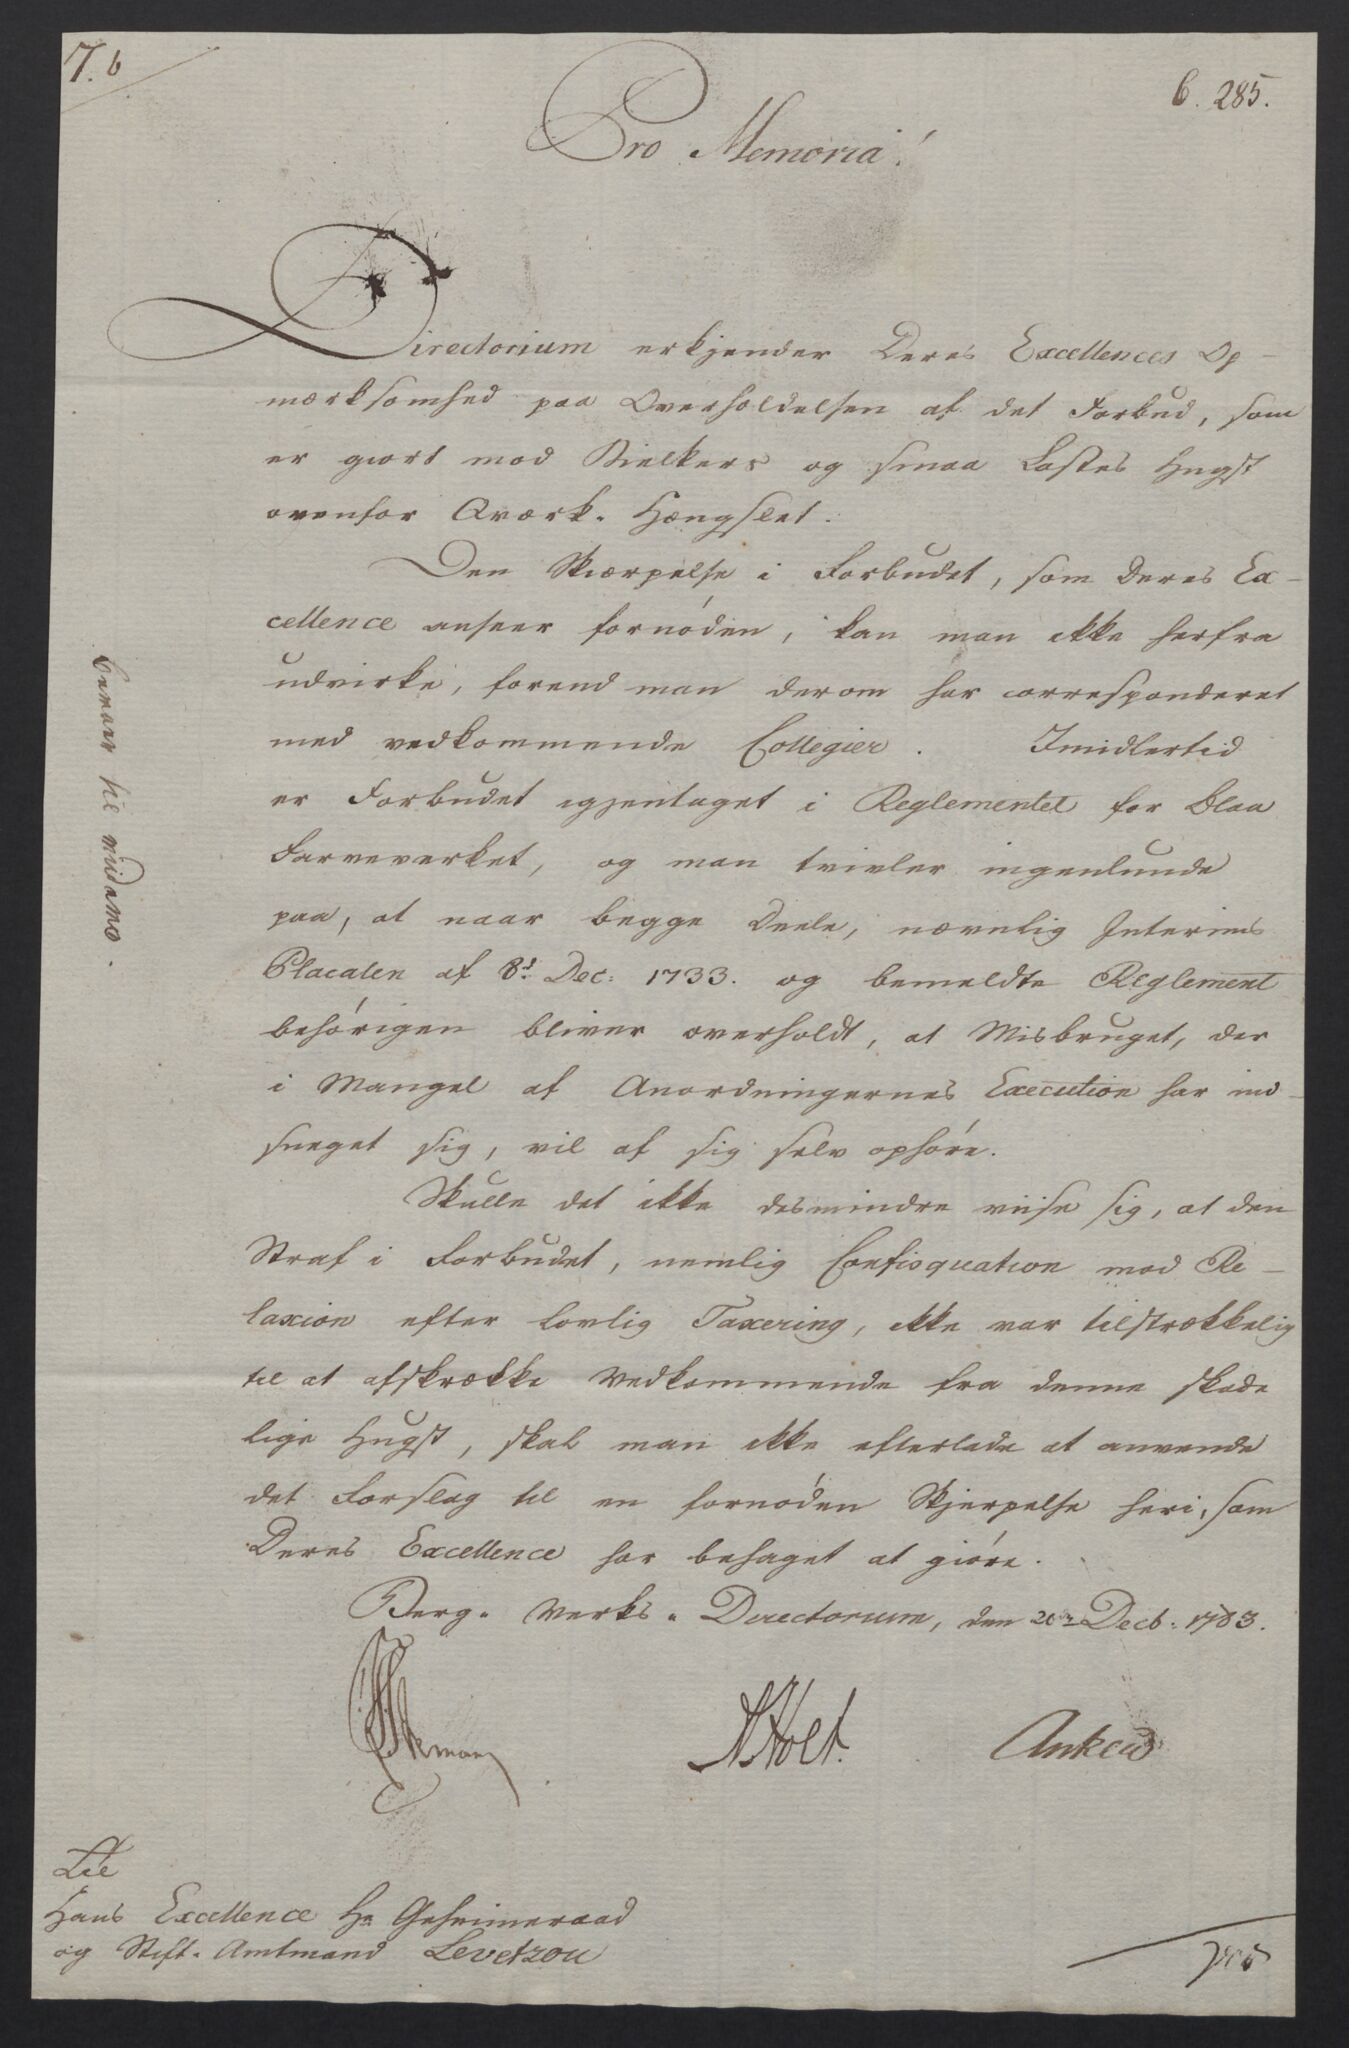 7. b
6. 285.
Pro Memoria!
Directorium erkjender Deres Excellences Op-
mærksomhed paa Overholdelsen af det Forbud, som
er giort mod Bielkers og smaa Lastes Hugst
ovenfor Qværk-Hængslet.
Den Skiærpelse i Forbudet, som Deres Ex-
cellence anseer fornöden, kan man ikke herfra
udvirke, forend man derom har corresponderet
med vedkommende Collegier. Imidlertid
er Forbudet igjentaget i Reglementet for Blaa
Farveverket, og man tvivler ingenlunde
paa, at naar begge Deele, nævnlig Interims
Placaten af 8d. Dec: 1733. og bemeldte Reglement
behörigen bliver overholdt, at Misbruget, der
i Mangel af Anordningernes Execution har ind-
sneget sig, vil af sig selv ophöre.
Skulle det ikke desmindre viise sig, at den
Straf i Forbudet, nemlig Confisquation mod Re-
laxion efter lovlig Taxering, ikke var tilstrækkelig
til at afskrække Vedkommende fra denne skade
lige Hugst, skal man ikke efterlade at anvende
det Forslag til en fornöden Skjerpelse heri, som
Deres Excellence har behaget at giöre.
Berg-Verks-Directorium, den 20de Decb: 1783.
NHolt. Ankeid
Til
Hans Excellence Hr Geheimeraad
og Stift-Amtmand Levetzou